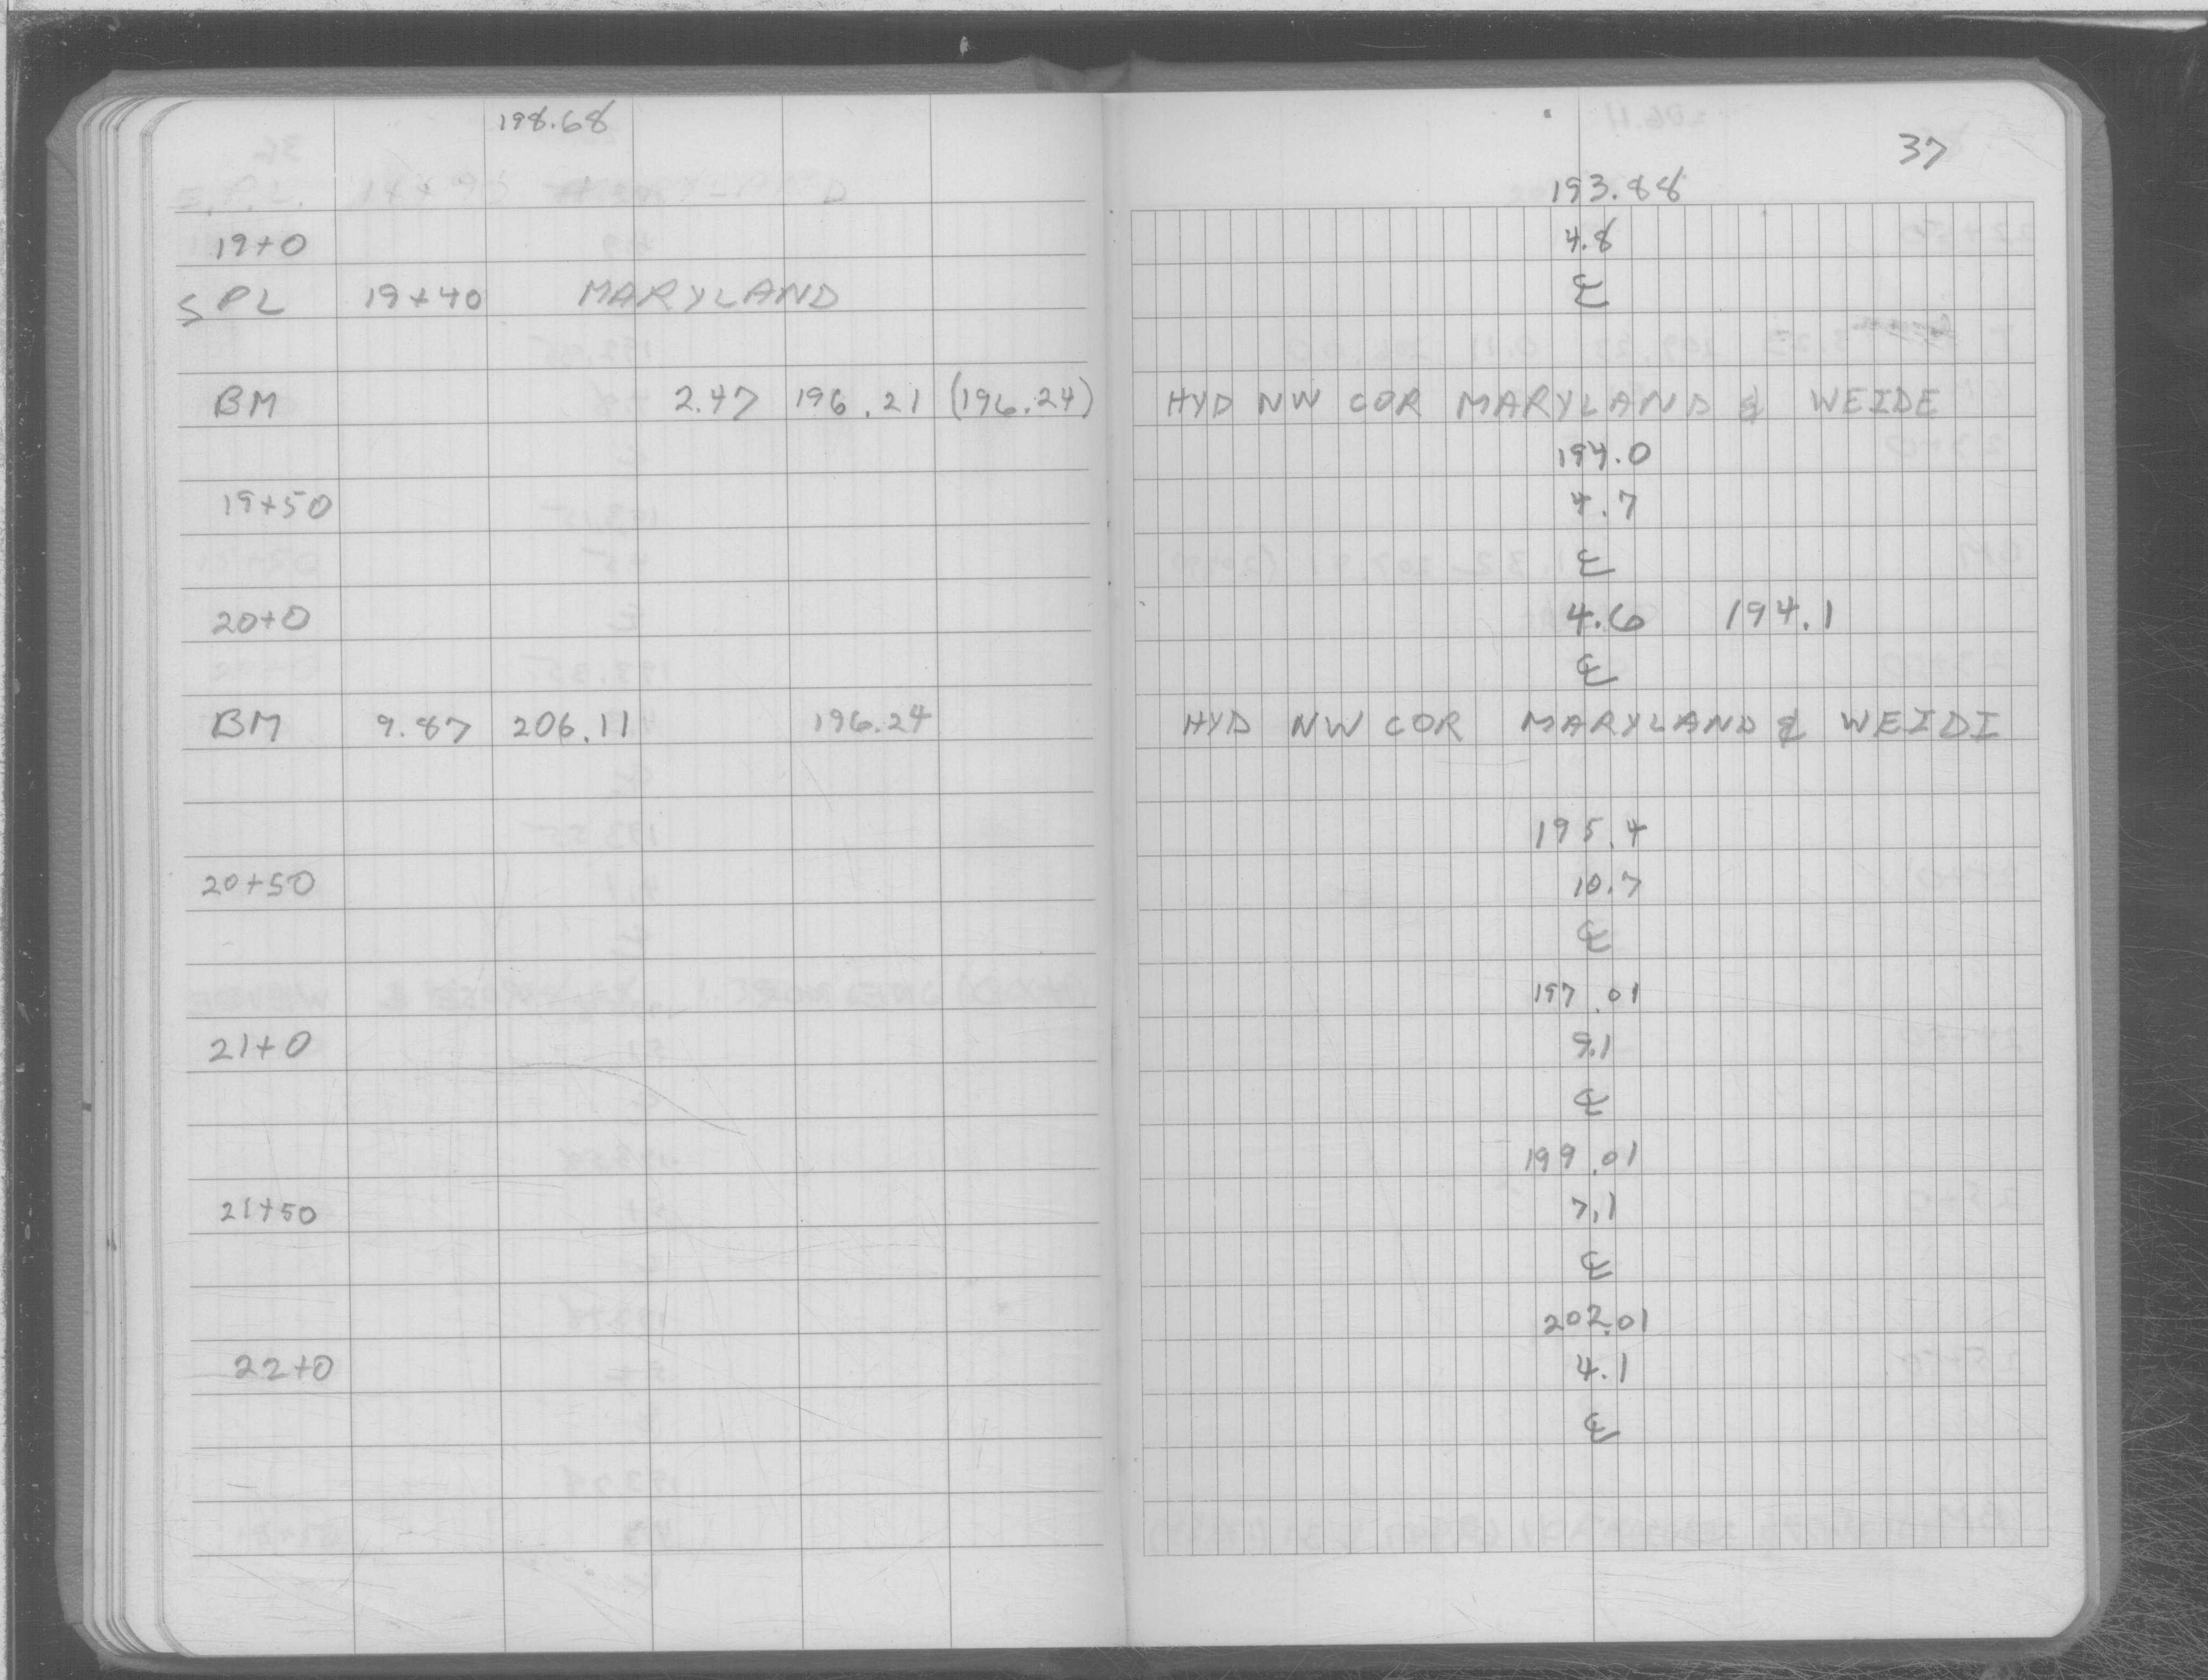 198.68
37
193.88
19+0 4.8
S PL 19+40 MARYLAND ℄
BM 2.47 196.21 (196.24) HYD NW COR MARYLAND & WEIDE
194.0
19+50 4.7
℄
20+0 4.6 194.1
℄
BM 9.87 206.11 196.24 HYD NW COR MARYLAND & WEIDI
195.4
20+50 10.7
℄
197.01
21+0 9.1
℄
199.01
21+50 7.1
℄
202.01
22+0 4.1
℄